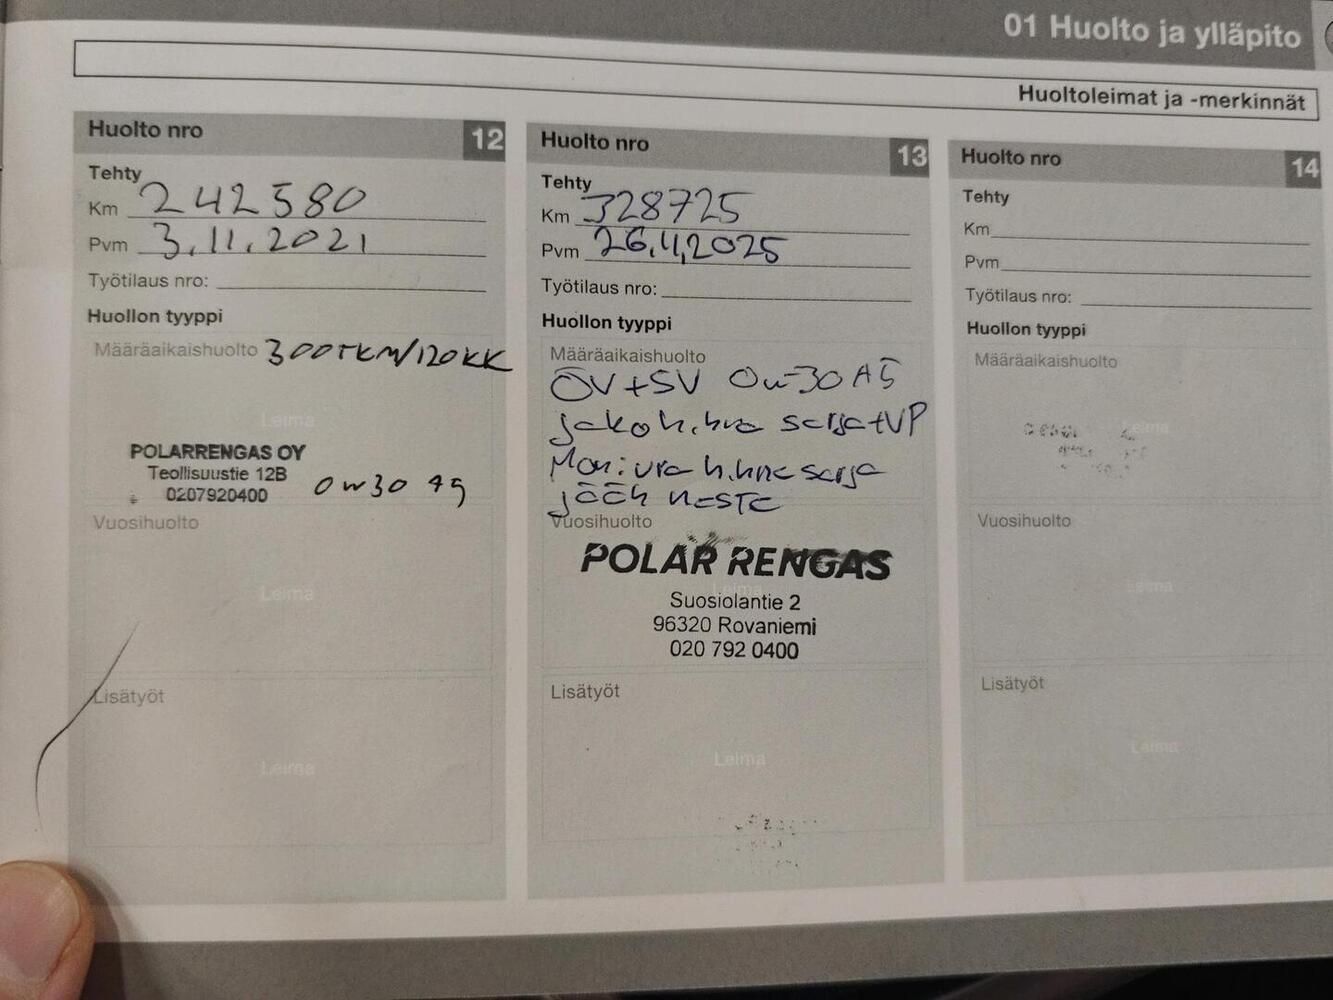 01 Huolto ja ylläpito
Huoltoleimat ja -merkinnät
Huolto nro 12
Tehty
Km 242580
Pvm 3.11.2021
Työtilaus nro:
Huollon tyyppi
Määräaikaishuolto 300TKM/120KK
Leima
POLARRENGAS OY
Teollisuustie 12B
0207920400 0w30
Vuosihuolto
Leima
Lisätyöt
Leima
Huolto nro 13
Tehty
Km 328725
Pvm 26.4.2025
Työtilaus nro:
Huollon tyyppi
Määräaikaishuolto
ÖV+SV 0w-30 A5
Jakohihna sarja+VP
Moniura hihna sarja
Jääh neste
Vuosihuolto
POLAR RENGAS
Leima
Suosiolantie 2
96320 Rovaniemi
020 792 0400
Lisätyöt
Leima
Huolto nro 14
Tehty
Km
Pvm
Työtilaus nro:
Huollon tyyppi
Määräaikaishuolto
Leima
Vuosihuolto
Leima
Lisätyöt
Leima